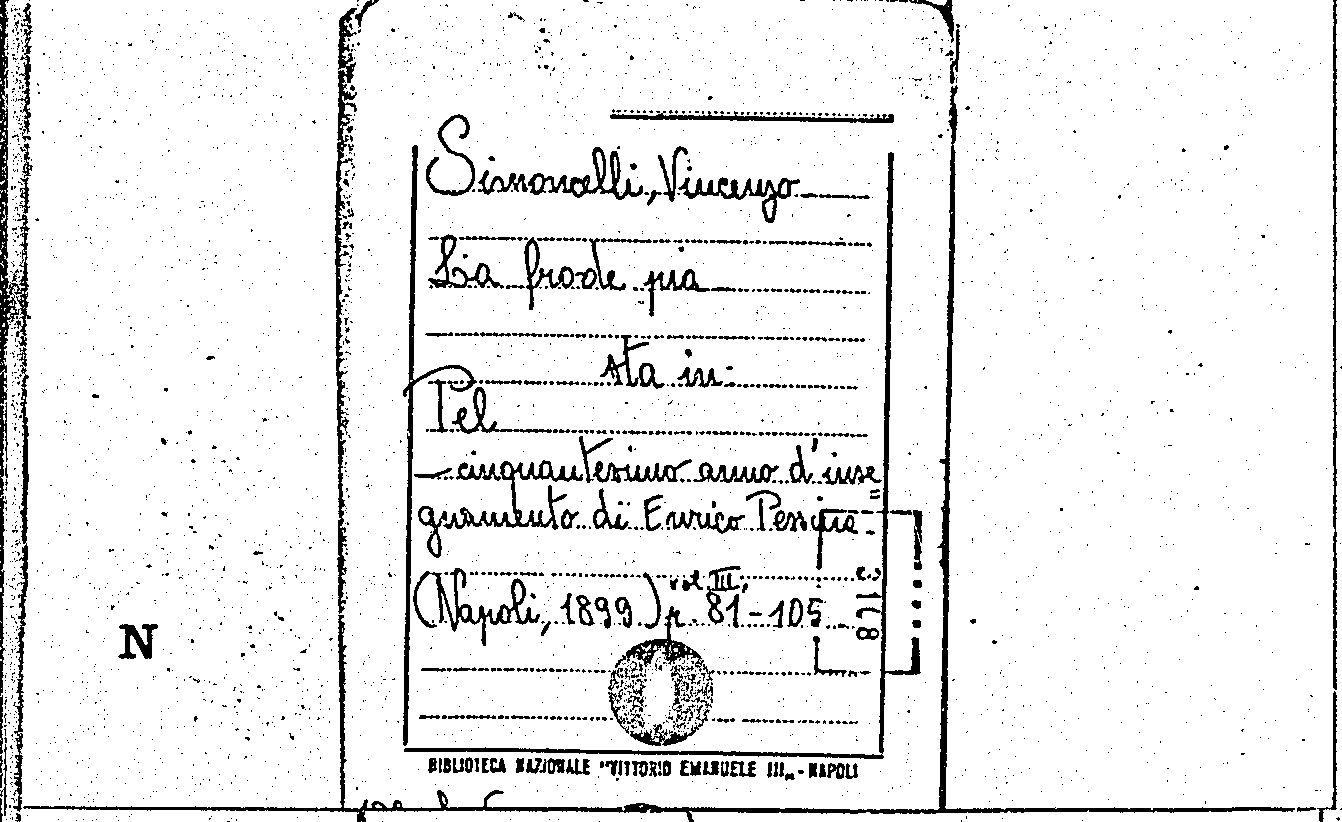 Simoncelli, Vincenzo
La frode pia
sta in:
Pel
cinquantesimo anno d'inse=
gnamento di Enrico Pessina.
(Napoli, 1899) vol. III, p. 81-105
N
BIBLIOTECA NAZIONALE "VITTORIO EMANUELE III„ - NAPOLI